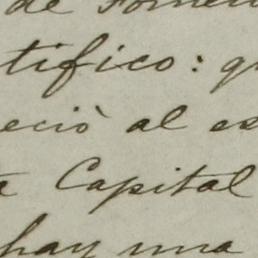 de Fomen
tifico: q
eciò al es
a Capital
hay una